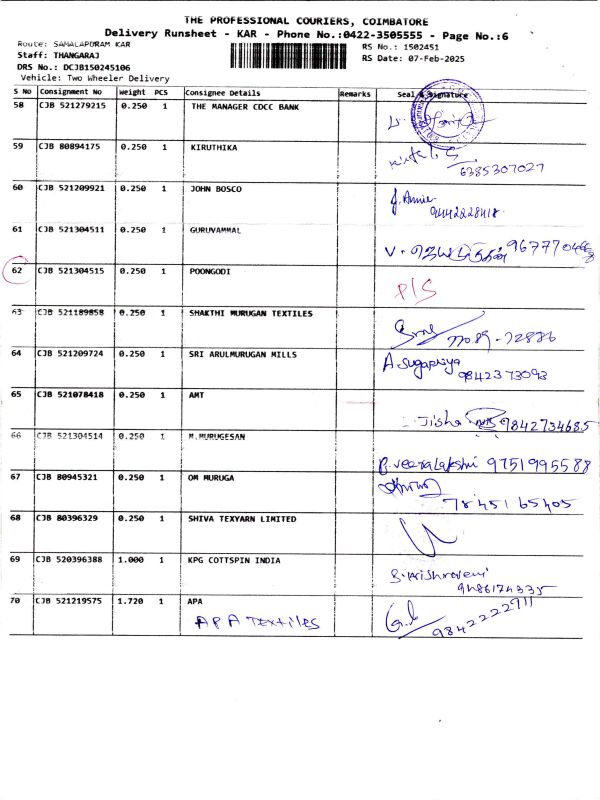 THE PROFESSIONAL COURIERS, COIMBATORE
Delivery Runsheet - KAR - Phone No.:0422-3505555 - Page No.:6
Route: SAMALAPURAM KAR
RS No.: 1502451
Staff: THANGARAJ
RS Date: 07-Feb-2025
DRS No.: DCJB150245106
Vehicle: Two Wheeler Delivery
S No Consignment No Weight PCS Consignee Details Remarks Seal & Signature
58 CJB 521279215 0.250 1 THE MANAGER CDCC BANK
59 CJB 80894175 0.250 1 KIRUTHIKA
6385307027
60 CJB 521209921 0.250 1 JOHN BOSCO J. Annie
9442228418
61 CJB 521304511 0.250 1 GURUVAMMAL
V.
62 CJB 521304515 0.250 1 POONGODI
P/S
63 CJB 521189858 0.250 1 SHAKTHI MURUGAN TEXTILES
64 CJB 521209724 0.250 1 SRI ARULMURUGAN MILLS A Sugapriya
9842373093
65 CJB 521078418 0.250 1 AMT
Jisha 9842734685
66 CJB 521304514 0.250 1 M.MURUGESAN
P. Veeralakshmi 9751995588
67 CJB 80945321 0.250 1 OM MURUGA
7845165405
68 CJB 80396329 0.250 1 SHIVA TEXYARN LIMITED
69 CJB 520396388 1.000 1 KPG COTTSPIN INDIA
9486174335
70 CJB 521219575 1.720 1 APA
APA TEXTILES 9842222711